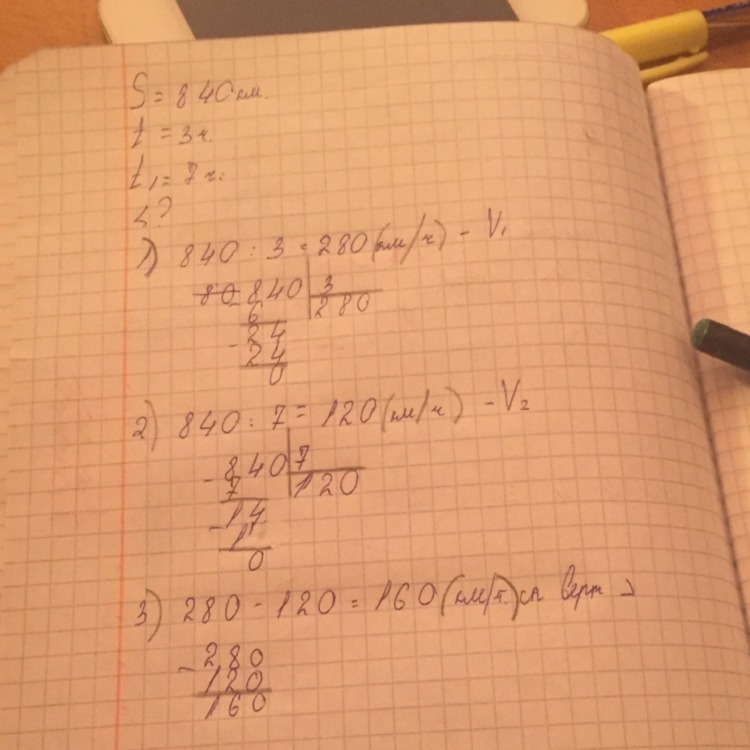 S = 840 км.
t = 3 ч.
t₁ = 7 ч.
?
1) 840 : 3 = 280 (км/ч) - V₁
80 840 3
6 280
24
24
0
2) 840 : 7 = 120 (км/ч) - V₂
- 840 7
7 120
14
- 1
0
3) 280 - 120 = 160 (км/ч)
- 280
120
160